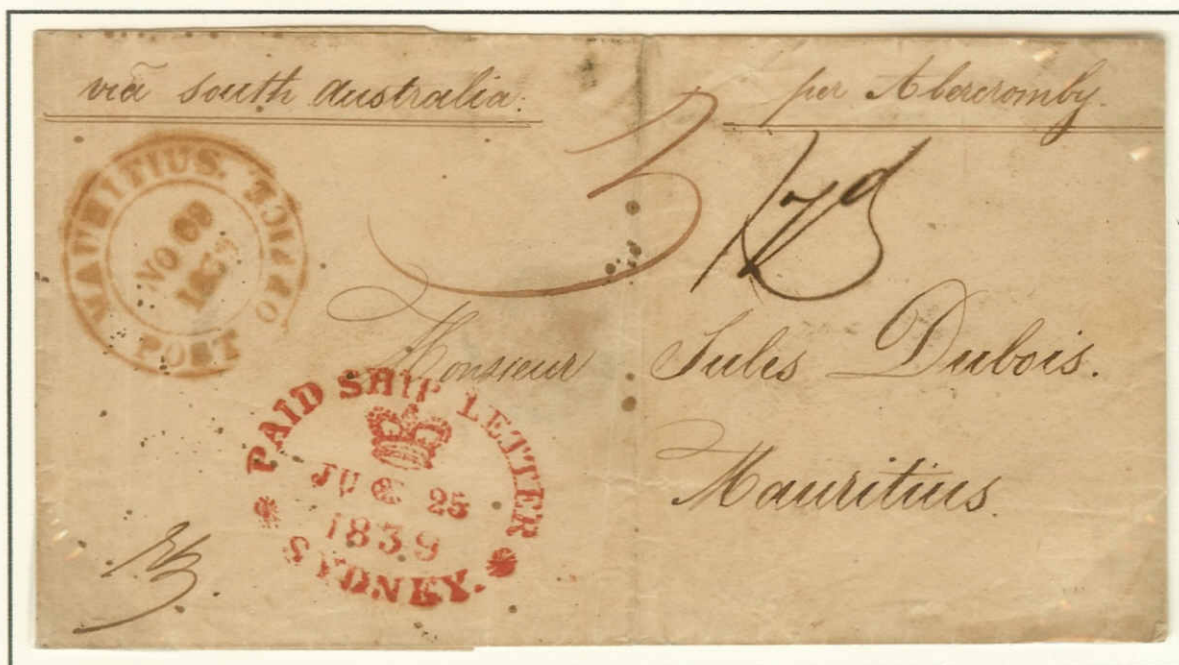 via south Australia. per Abercromby.
MAURITIUS. POST OFFICE
NO
3
Monsieur Jules Dubois.
Mauritius.
PAID SHIP LETTER
JU 25
1839
SYDNEY.